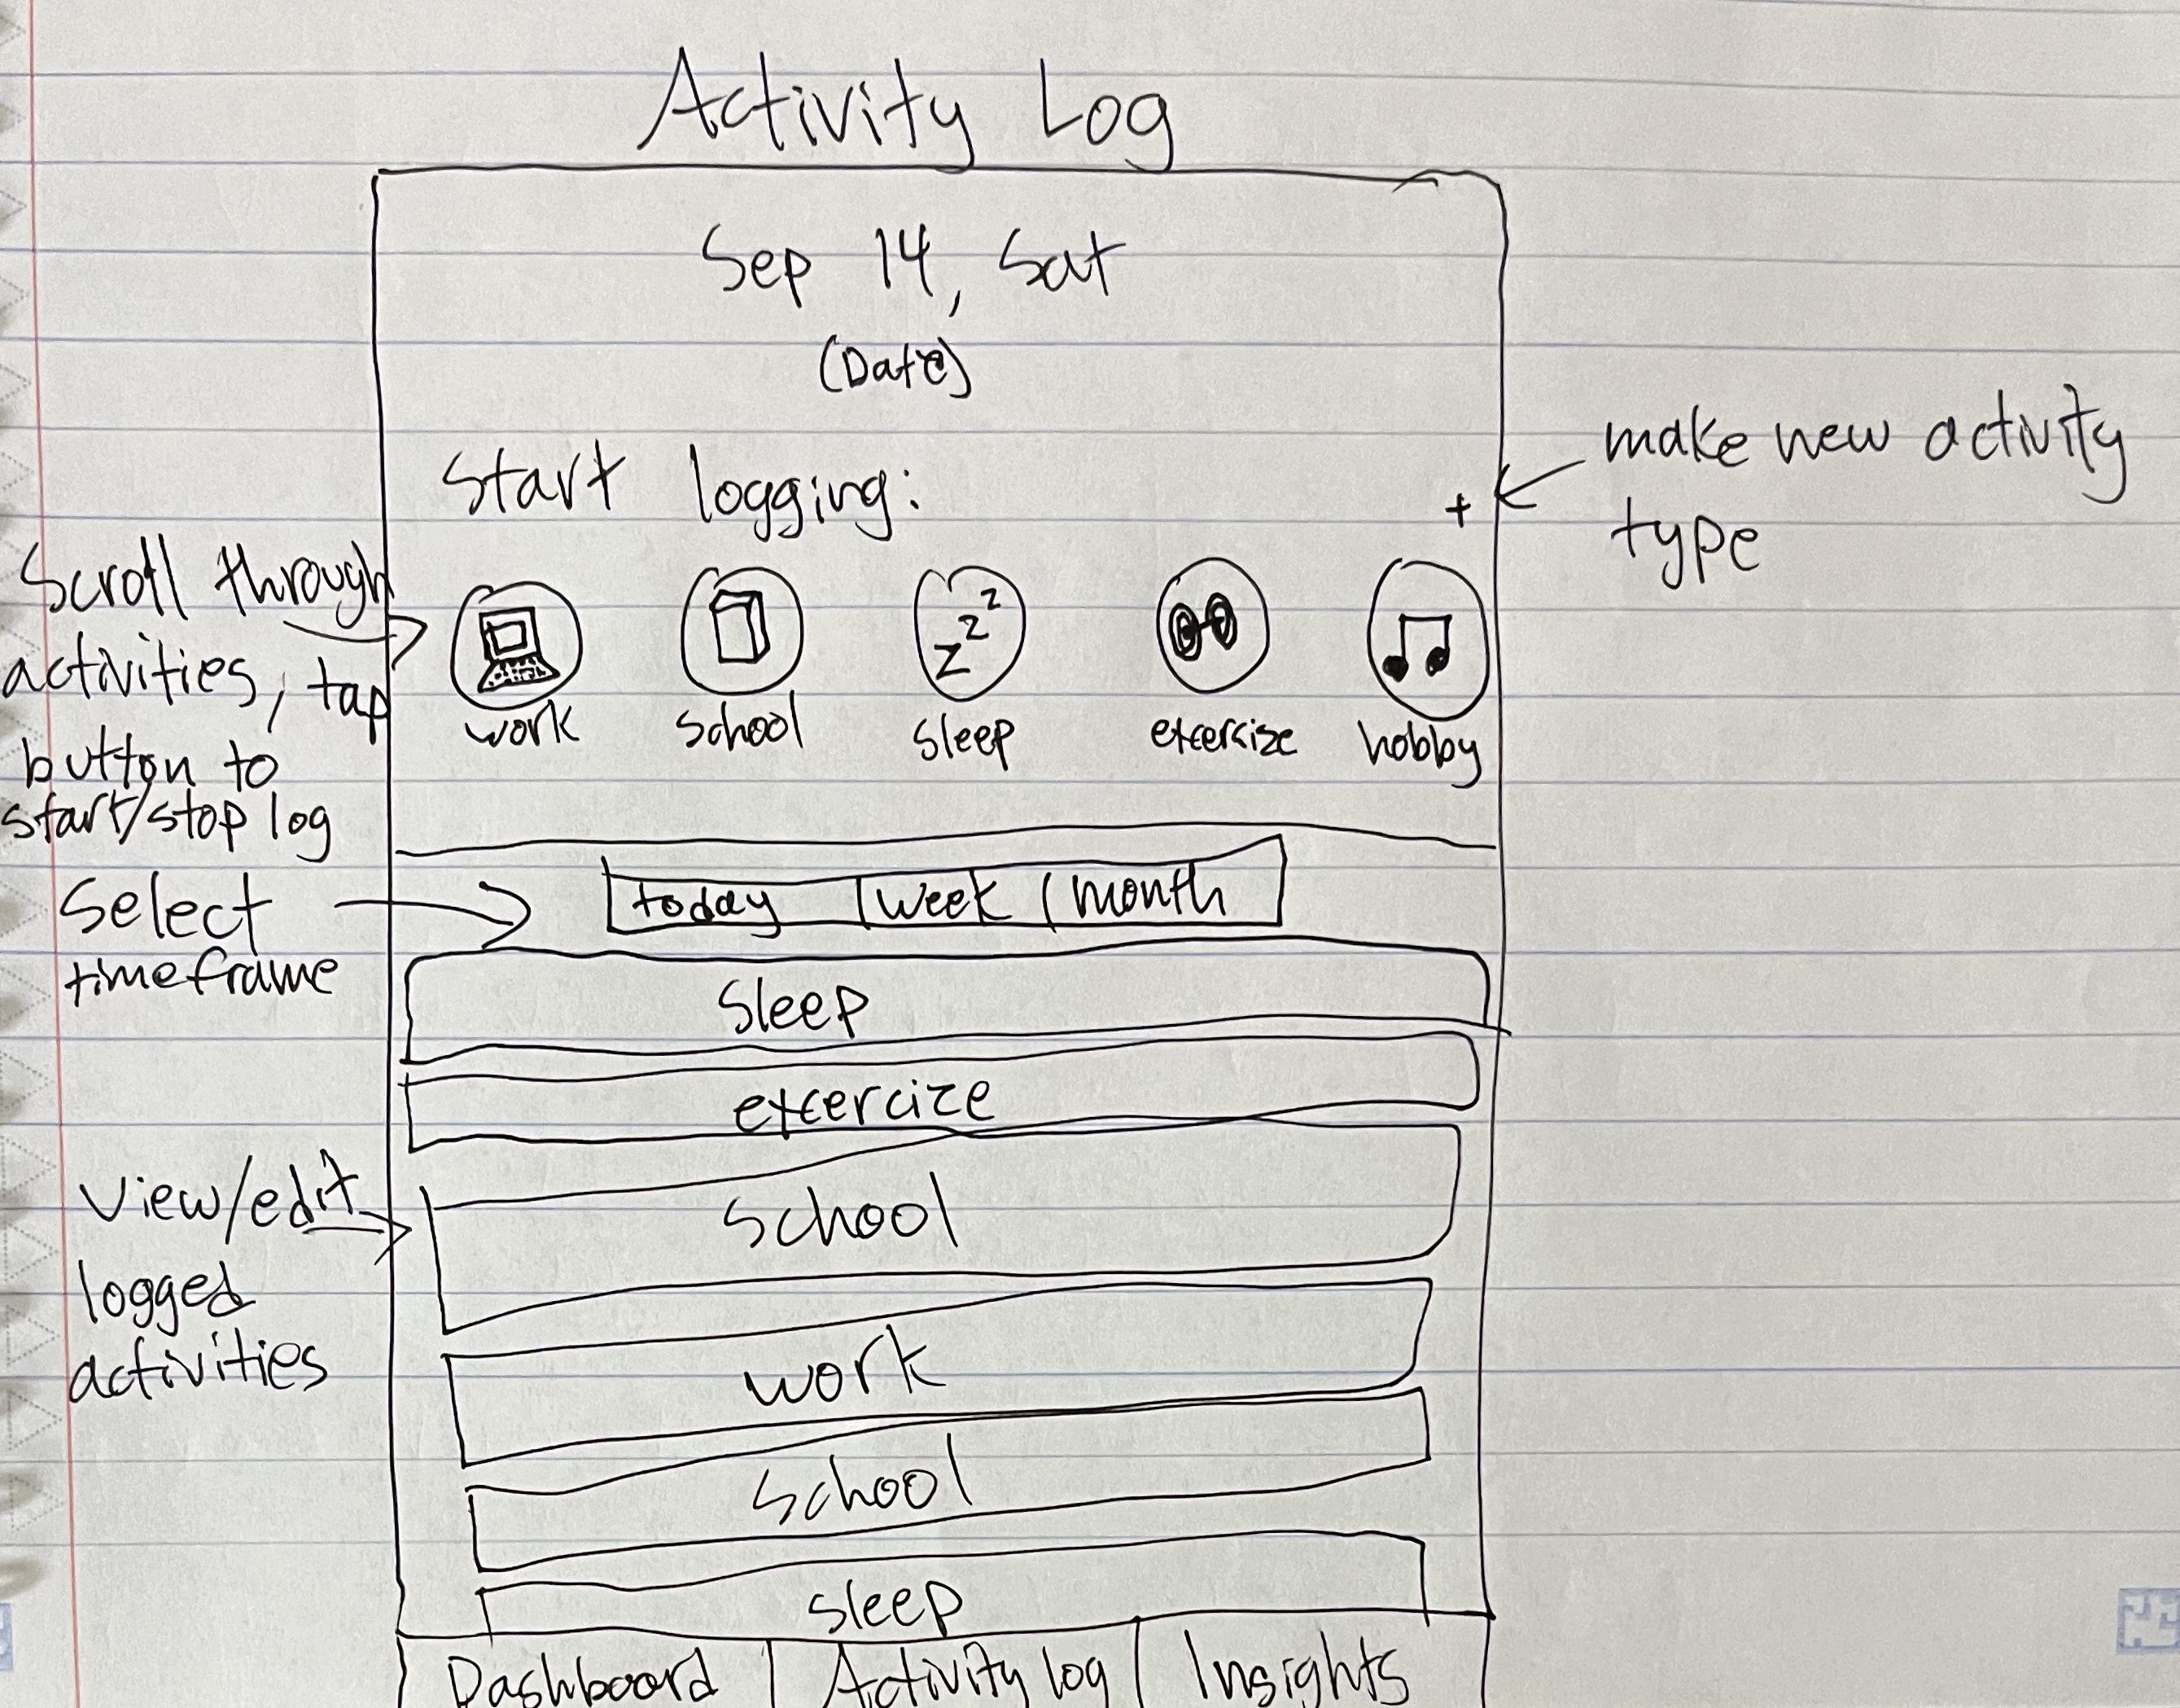 Activity Log
Sep 14, Sat
(Date)
Start logging:
+
make new activity
type
Scroll through
activities, tap
button to
start/stop log
z z z
work school sleep excercize hobby
Select
timeframe
today week month
Sleep
excercize
School
work
School
sleep
View/edit
logged
activities
Dashboard Activity log Insights